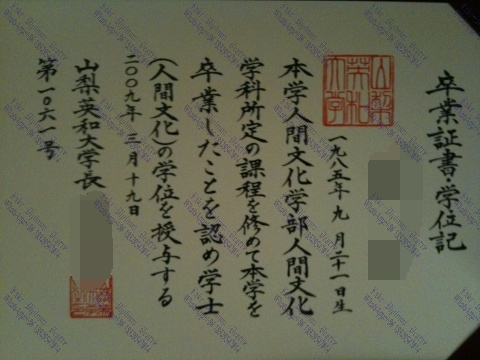 卒業証書・学位記
山梨英和大学
一九八五年九月二十一日生
本学人間文化学部人間文化
学科所定の課程を修めて本学を
卒業したことを認め学士
(人間文化)の学位を授与する
二〇〇九年三月十九日
山梨英和大学長
第一〇六一号